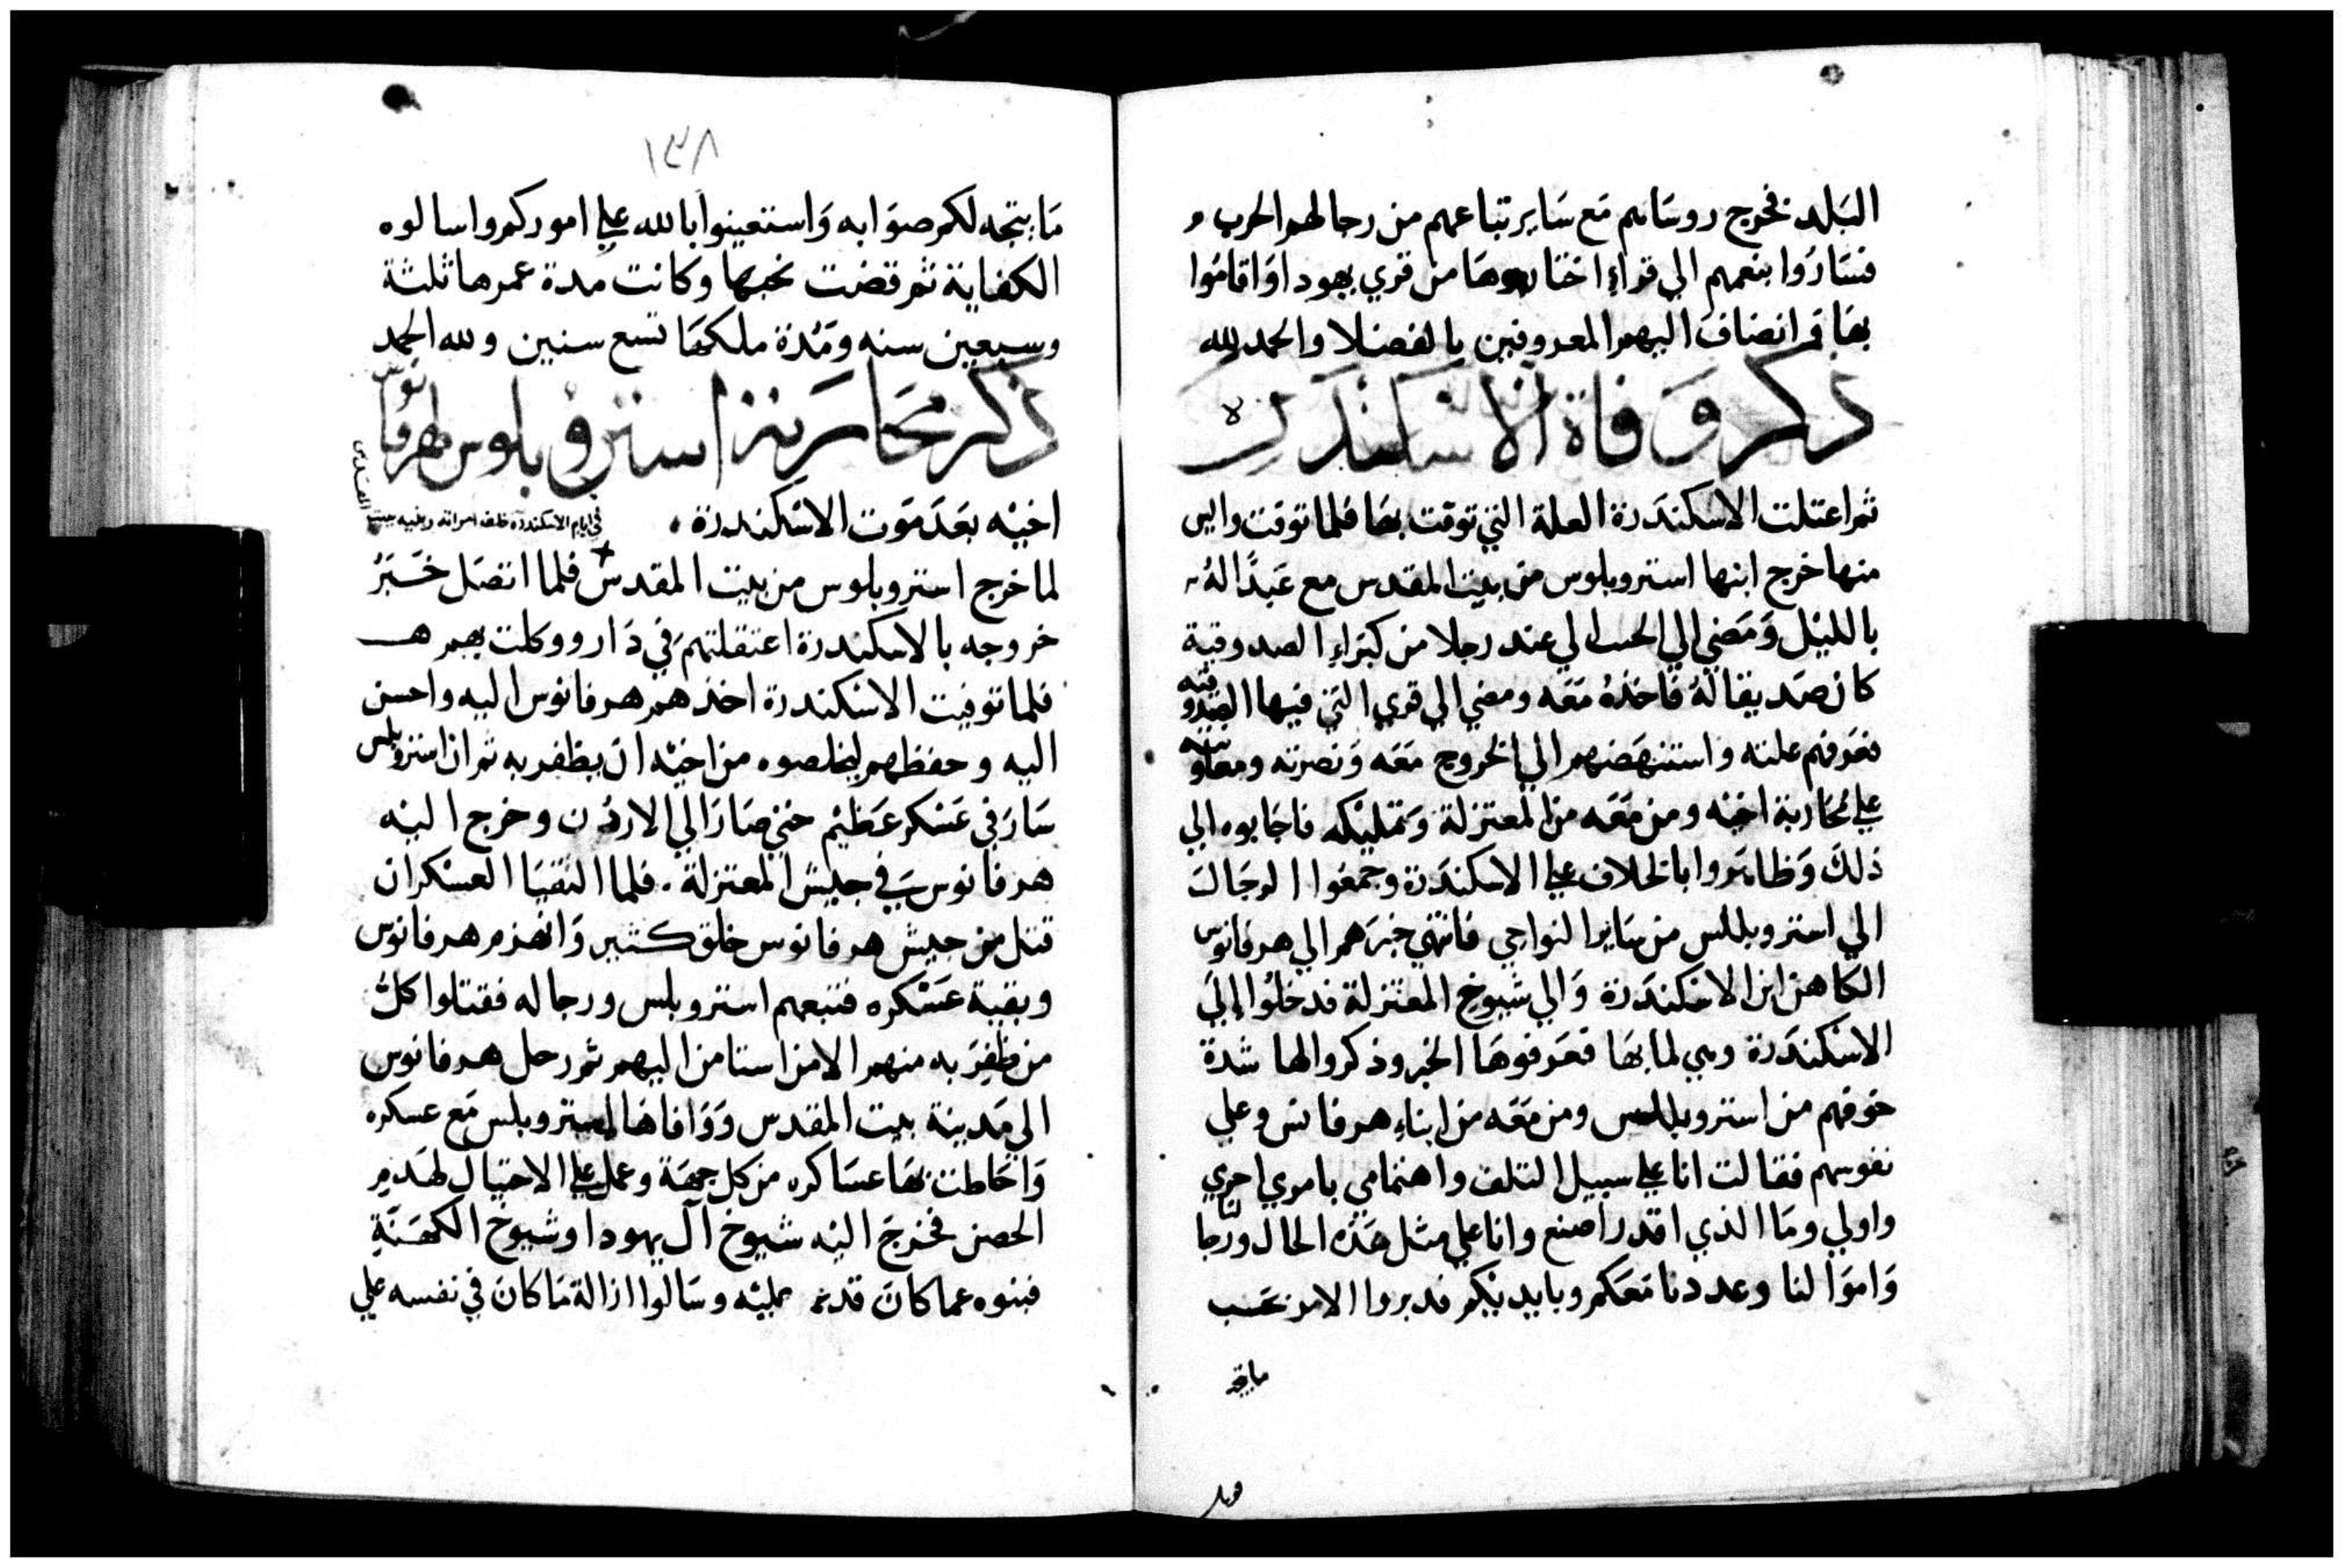 البلد فخرج روساهم مع ساير تباعهم من رجالهم الحرب
فساروا بنعمهم الي قراء اختاروها من قري يهودا واقاموا
بها فانضاف اليهم المعروفين بالفضلا والحمد لله
ذكر وفاة الاسكندرة
ثم اعتلت الاسكندرة العلة التي توفت بها فلما توفت وايس
منها خرج ابنها استروبلوس من بيت المقدس مع عبدًا له
بالليل ومضي الي عند رجلا من كبراء الصدوقية
كان صديقا له فاخذه معه ومضي الي قري التي فيها الصدوقية
فعرفهم علته واستنهضهم الي الخروج معه ونصرته ومعاونته
علي محاربة اخيه ومن معه من المعتزلة وتمليكه فاجابوه الي
ذلك وظاهروا بالخلاف علي الاسكندرة وجمعوا الرجال
الي استروبللس من ساير النواحي فانتهي خبرهم الي هرفانوس
الكاهن ابن الاسكندرة والي شيوخ المعتزلة فدخلوا إلي
الاسكندرة وهي لما بها فعرفوها الخبر وذكروا لها شدة
خوفهم من استروبللس ومن معه من ابناء هرفانس وعلي
نفوسهم فقالت انا علي سبيل التلف واهتمامي بامري احري
واولي وما الذي اقدر اصنع وانا علي مثل هذه الحال ورجالنا
واموالنا وعددنا معكم وبايديكم فدبروا الامر حسب
ما يتجه
١٣٨
ما يتجه لكم صوابه واستعينوا بالله علي اموركم واسالوه
الكفاية ثم قضت نحبها وكانت مدة عمرها ثلثة
وسبعين سنه ومدة ملكها تسع سنين ولله الحمد
ذكر محاربة استروبلوس لهرفانوس
اخيه بعد موت الاسكندرة
في ايام الاسكندرة خلف امراته وبنيه ببيت المقدس
لما خرج استروبلوس من بيت المقدس فلما اتصل خبر
خروجه بالاسكندرة اعتقلتهم في دار ووكلت بهم
فلما توفيت الاسكندرة اخذهم هرفانوس اليه واحسن
اليه وحفظهم ليخلصوه من اخيه ان يظفر به ثم ان استروبلس
سار في عسكر عظيم حتي صار الي الاردن وخرج اليه
هرفانوس في جيش المعتزلة. فلما التقيا العسكران
قتل من جيش هرفانوس خلق كثير وانهزم هرفانوس
وبقية عسكره فتبعهم استروبلس ورجاله فقتلوا كل
من ظفر به منهم الا من استامن اليهم ثم رحل هرفانوس
الي مدينة بيت المقدس ووافاها استروبلس مع عسكره
واحاطت بها عساكره من كل جهة وعمل علي الاحتيال لهدم
الحصن فخرج اليه شيوخ آل يهودا وشيوخ الكهنة
فبنوه عما كان قد عليه وسالوا ازالة ما كان في نفسه علي